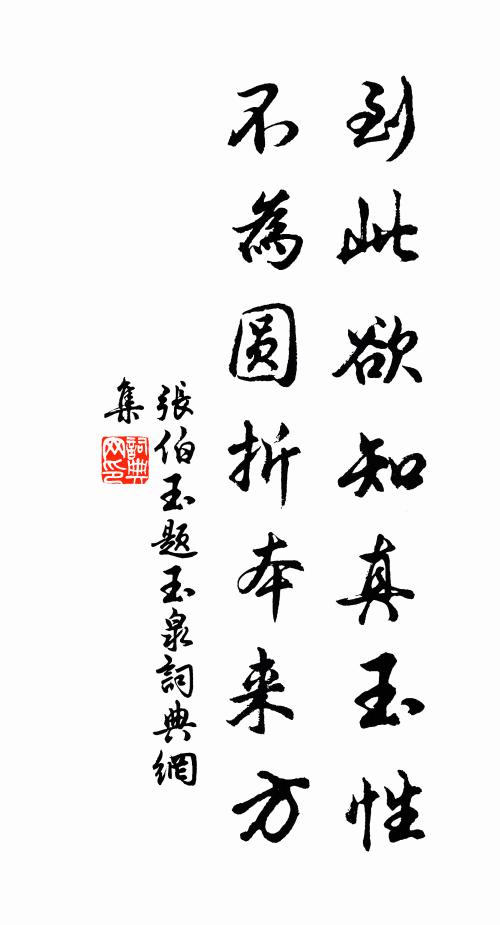 到此欲知真玉性
不為圓折本来方
張伯玉题玉泉詞典網
集
詞典
网印